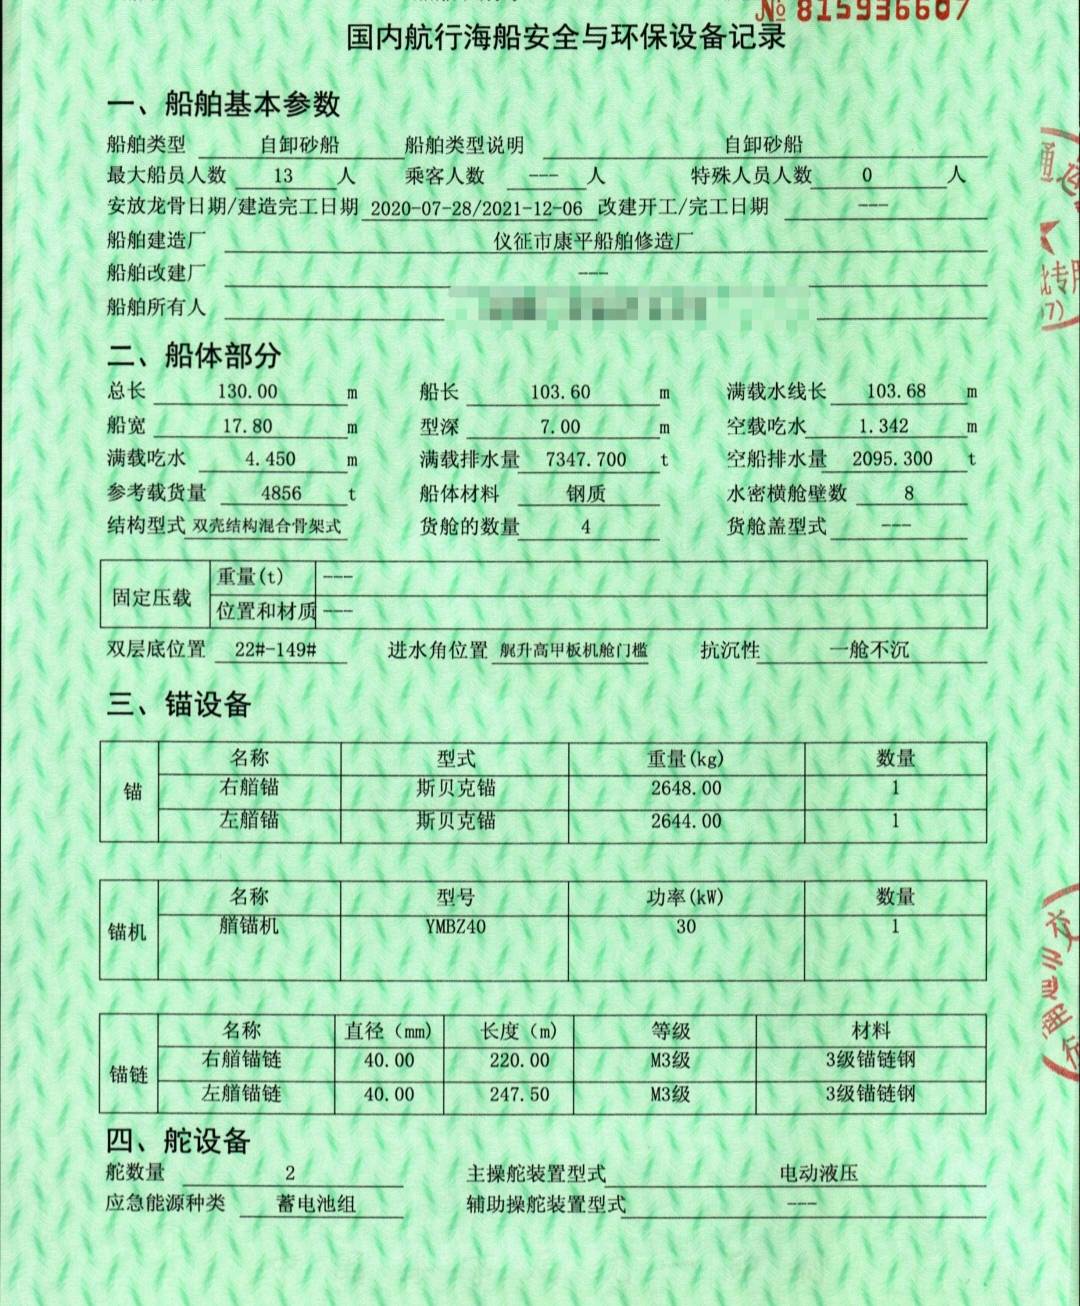 № 815936607
国内航行海船安全与环保设备记录
一、船舶基本参数
船舶类型 自卸砂船 船舶类型说明 自卸砂船
最大船员人数 13 人 乘客人数 --- 人 特殊人员人数 0 人
安放龙骨日期/建造完工日期 2020-07-28/2021-12-06 改建开工/完工日期 ---
船舶建造厂 仪征市康平船舶修造厂
船舶改建厂 ---
船舶所有人
二、船体部分
总长 130.00 m 船长 103.60 m 满载水线长 103.68 m
船宽 17.80 m 型深 7.00 m 空载吃水 1.342 m
满载吃水 4.450 m 满载排水量 7347.700 t 空船排水量 2095.300 t
参考载货量 4856 t 船体材料 钢质 水密横舱壁数 8
结构型式 双壳结构混合骨架式 货舱的数量 4 货舱盖型式 ---
固定压载 重量(t) ---
位置和材质 ---
双层底位置 22#-149# 进水角位置 艉升高甲板机舱门槛 抗沉性 一舱不沉
三、锚设备
锚 名称 型式 重量(kg) 数量
右艏锚 斯贝克锚 2648.00 1
左艏锚 斯贝克锚 2644.00 1
锚机 名称 型号 功率(kW) 数量
艏锚机 YMBZ40 30 1
锚链 名称 直径（mm) 长度（m) 等级 材料
右艏锚链 40.00 220.00 M3级 3级锚链钢
左艏锚链 40.00 247.50 M3级 3级锚链钢
四、舵设备
舵数量 2 主操舵装置型式 电动液压
应急能源种类 蓄电池组 辅助操舵装置型式 ---